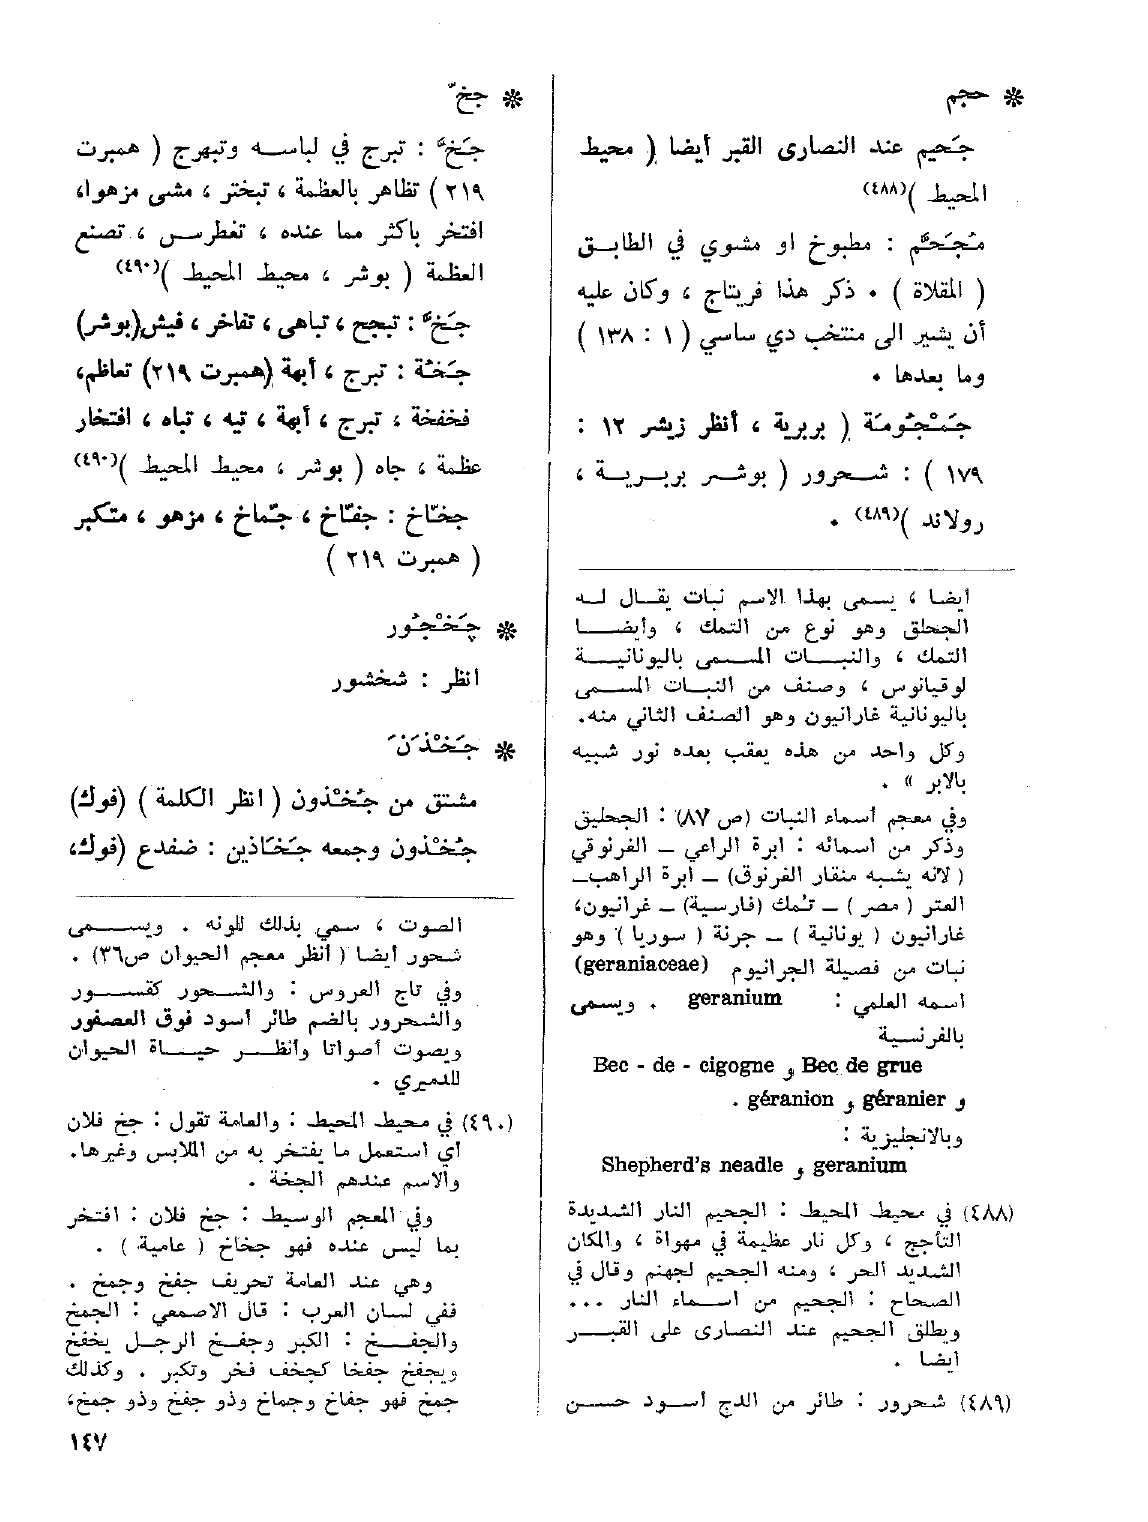 ❊ حجم
جَحيم عند النصارى القبر أيضا ( محيط
المحيط )(٤٨٨)
مُجَحَّم : مطبوخ او مشوي في الطابق
( المقلاة ) . ذكر هذا فريتاج ، وكان عليه
أن يشير الى منتخب دي ساسي ( ١ : ١٣٨ )
وما بعدها .
جَحْجُومَة ( بربرية ، أنظر زيشر ١٢ :
١٧٩ ) : شحرور ( بوشر بربرية ،
رولاند )(٤٨٩) .
أيضا ، يسمى بهذا الاسم نبات يقال له
الجحلق وهو نوع من التمك ، وأيضا
التمك ، والنبات المسمى باليونانية
لوقيانوس ، وصنف من النبات المسمى
باليونانية غارانيون وهو الصنف الثاني منه.
وكل واحد من هذه يعقب بعده نور شبيه
بالابر » .
وفي معجم أسماء النبات (ص ٨٧) : الجحليق
وذكر من اسمائه : ابرة الراعي – الغرنوقي
( لانه يشبه منقار الغرنوق) – ابرة الراهب–
العتر ( مصر ) – تمك (فارسية) – غرانيون،
غارانيون ( يونانية ) – جرنة ( سوريا ) وهو
نبات من فصيلة الجرانيوم (geraniaceae)
اسمه العلمي : geranium . ويسمى
بالفرنسية
Bec de grue و Bec - de - cigogne
و géranier و géranion .
وبالانجليزية :
geranium و Shepherd's neadle
(٤٨٨) في محيط المحيط : الجحيم النار الشديدة
التأجج ، وكل نار عظيمة في مهواة ، والمكان
الشديد الحر ، ومنه الجحيم لجهنم وقال في
الصحاح : الجحيم من اسماء النار ...
ويطلق الجحيم عند النصارى على القبر
أيضا .
(٤٨٩) شحرور : طائر من الدج أسود حسن
❊ جخّ
جَخّ : تبرج في لباسه وتبهرج ( همبرت
٢١٩ ) تظاهر بالعظمة ، تبختر ، مشى مزهوا،
افتخر باكثر مما عنده ، تغطرس ، تصنع
العظمة ( بوشر ، محيط المحيط )(٤٩٠)
جَخّ : تبجح ، تباهى ، تفاخر ، فيش(بوشر)
جَخَّة : تبرج ، أبهة (همبرت ٢١٩) تعاظم،
فخفخة ، تبرج ، أبهة ، تيه ، تباه ، افتخار
عظمة ، جاه ( بوشر ، محيط المحيط )(٤٩٠)
جخّاخ : جفّاخ ، جمّاخ ، مزهو ، متكبر
( همبرت ٢١٩ )
❊ جَخْجُور
انظر : شخشور
❊ جَخْذَنَ
مشتق من جُخْذون ( انظر الكلمة ) (فوك)
جُخْذون وجمعه جَخَاذين : ضفدع (فوك،
الصوت ، سمي بذلك للونه . ويسمى
شحور أيضا ( أنظر معجم الحيوان ص٣٦) .
وفي تاج العروس : والشحور كقسور
والشحرور بالضم طائر أسود فوق العصفور
ويصوت أصواتا وأنظر حياة الحيوان
للدميري .
(٤٩٠) في محيط المحيط : والعامة تقول : جخ فلان
أي استعمل ما يفتخر به من الملابس وغيرها.
والاسم عندهم الجخة .
وفي المعجم الوسيط : جخ فلان : افتخر
بما ليس عنده فهو جخاخ ( عامية ) .
وهي عند العامة تحريف جفخ وجمخ .
ففي لسان العرب : قال الاصمعي : الجمخ
والجفخ : الكبر وجفخ الرجل يجفخ
ويجفخ جفخا كجخف فخر وتكبر . وكذلك
جمخ فهو جفاخ وجماخ وذو جفخ وذو جمخ،
١٤٧